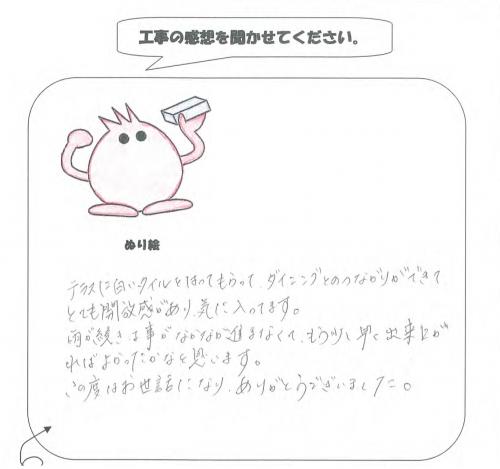 工事の感想を聞かせてください。
ぬり絵
テラスに白いタイルをはってもらって、ダイニングとのつながりができて
とても開放感があり、気に入ってます。
雨が続き工事がなかなか進まなくて、もう少し早く出来上が
ればよかったかなと思います。
この度はお世話になり、ありがとうございました。